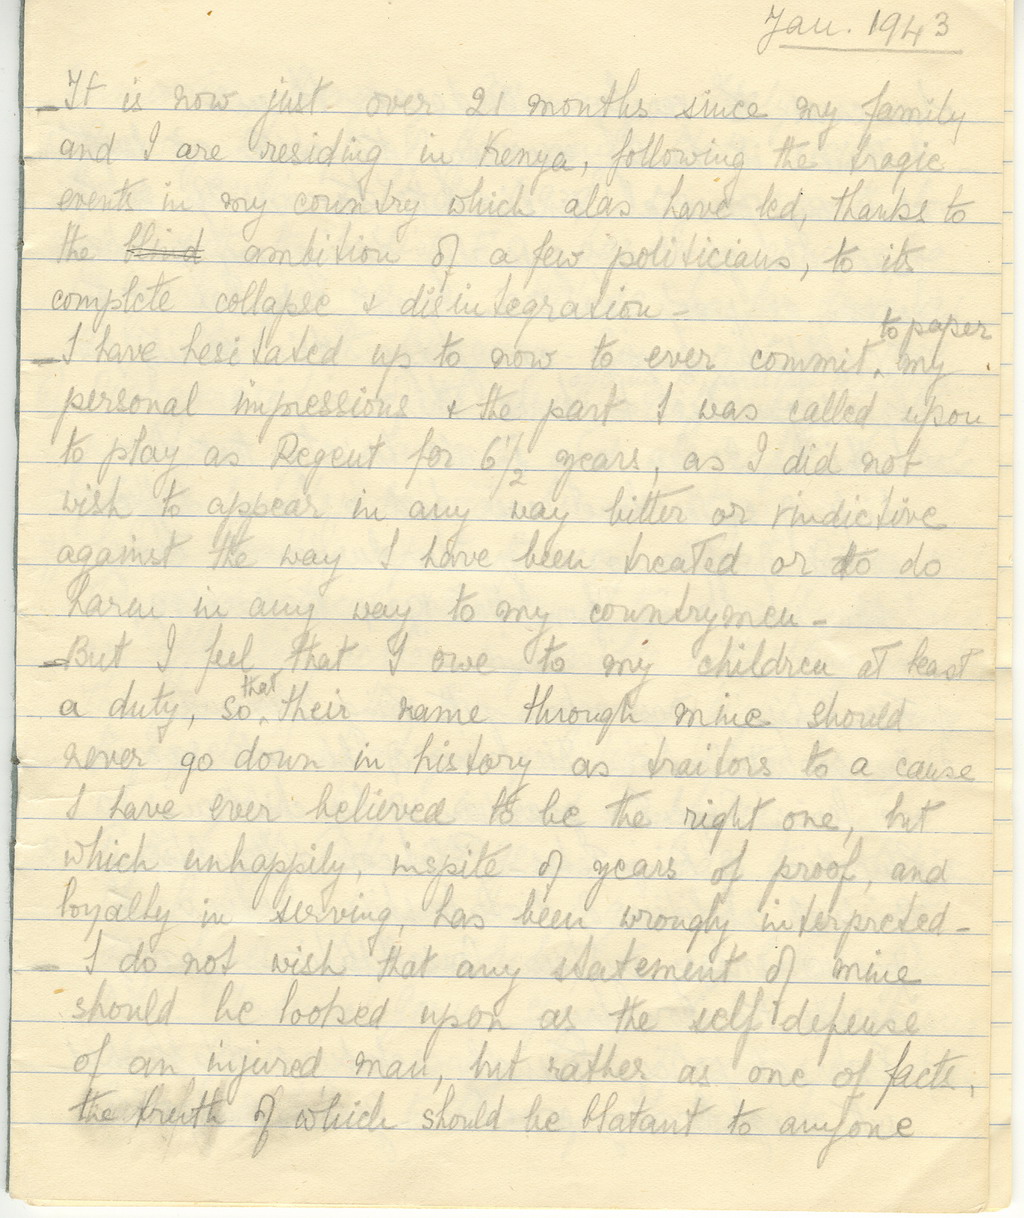 Jan. 1943
It is now just over 21 months since my family
and I are residing in Kenya, following the tragic
events in my country which alas have led, thanks to
the blind ambition of a few politicians, to its
complete collapse & disintegration -
I have hesitated up to now to ever commit to paper my
personal impressions & the part I was called upon
to play as Regent for 6 1/2 years, as I did not
wish to appear in any way bitter or vindictive
against the way I have been treated or to do
harm in any way to my countrymen -
But I feel that I owe to my children at least
a duty, so that their name through mine should
never go down in history as traitors to a cause
I have ever believed to be the right one, but
which unhappily, inspite of years of proof, and
loyalty in serving, has been wrongly interpreted -
I do not wish that any statement of mine
should be looked upon as the self defense
of an injured man, but rather as one of facts,
the truth of which should be blatant to anyone